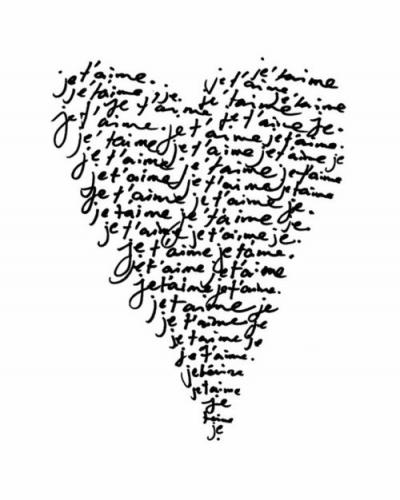 je t'aime. je t'aime
je t'aime, je. je t'aime je t'aime
je t'aime. je t'aime je.
je t'aime je t'aime je t'aime.
je t'aime je t'aime je t'aime je
je t'aime je t'aime je t'aime
je t'aime je t'aime je t'aime
je t'aime je t'aime je.
je t'aime je t'aime je
je t'aime je t'aime je.
je t'aime je t'aime.
je t'aime je t'aime
je t'aime je t'aime.
je t'aime je
je t'aime je
je t'aime je
je t'aime.
je t'aime
je
t'aime
je